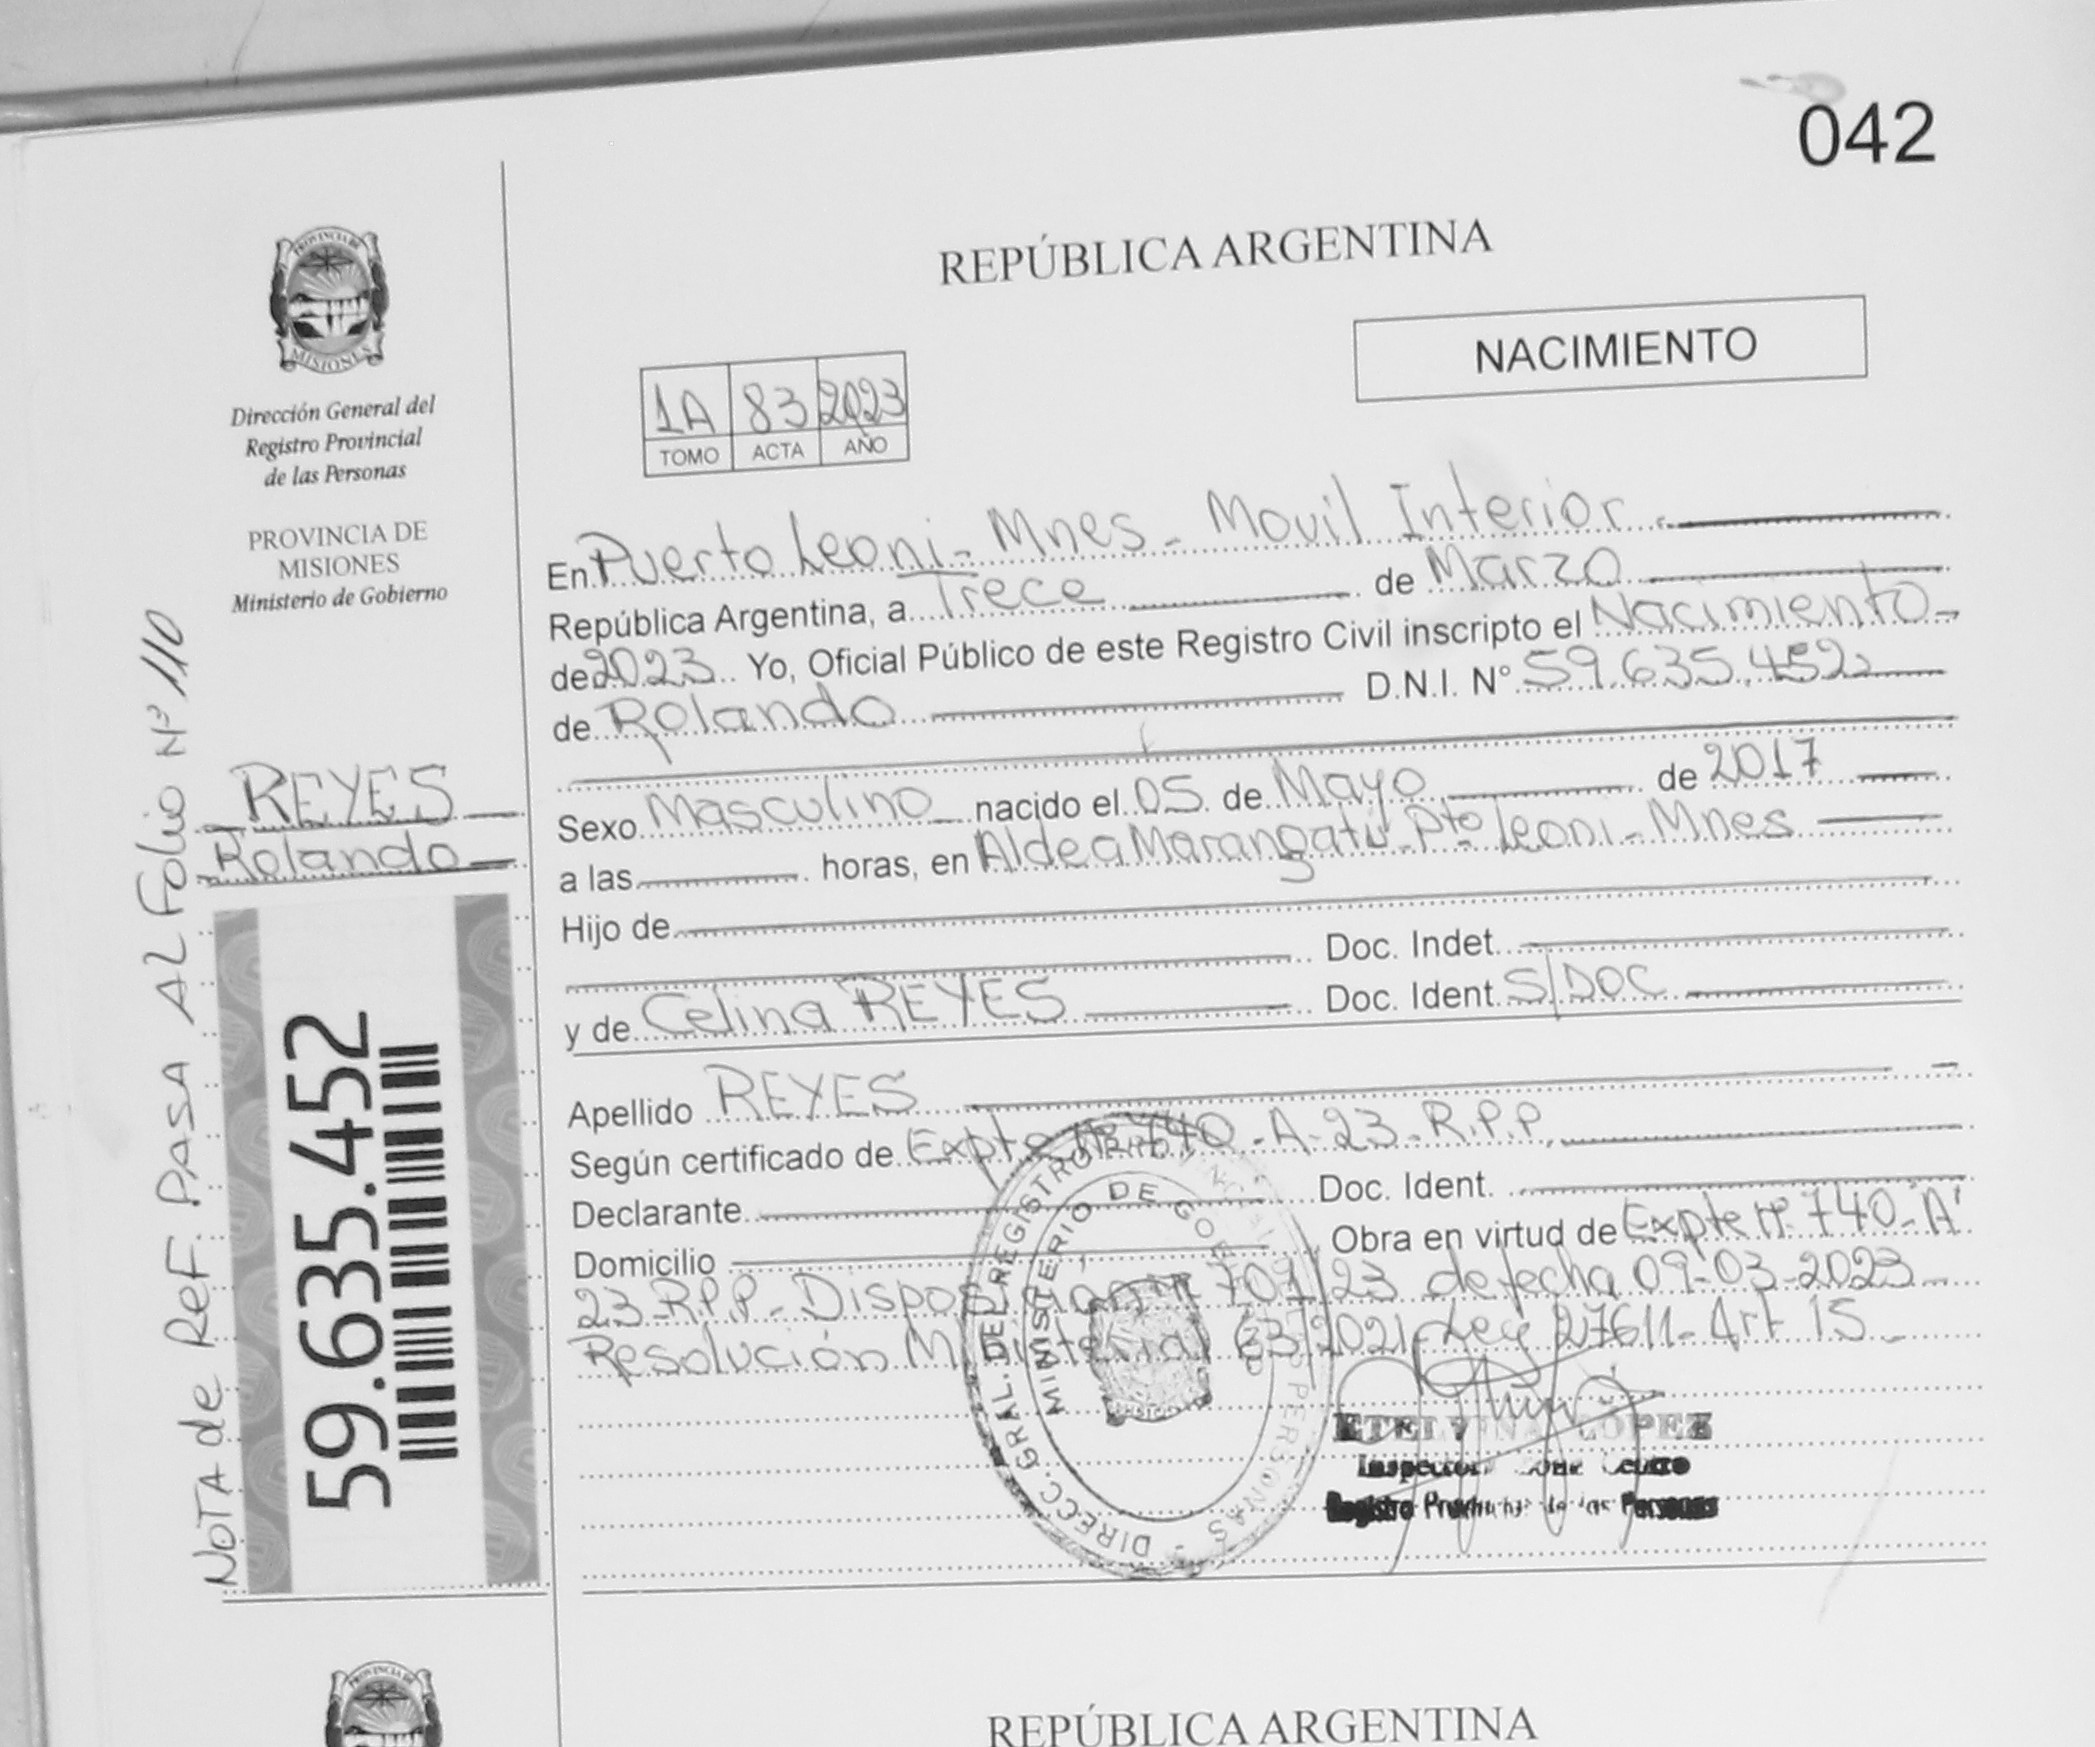 042
REPÚBLICA ARGENTINA
NACIMIENTO
PROVINCIA DE
MISIONES
Dirección General del
Registro Provincial
de las Personas
PROVINCIA DE
MISIONES
Ministerio de Gobierno
1A 83 2023
TOMO ACTA AÑO
En Puerto Leoni - Mnes - Movil Interior
República Argentina, a Trece de Marzo
de 2023 Yo, Oficial Público de este Registro Civil inscripto el Nacimiento
de Rolando D.N.I. N° 59.635.452
Sexo Masculino nacido el 05 de Mayo de 2017
a las horas, en Aldea Marangatú - Pto Leoni - Mnes
Hijo de
Doc. Indet.
y de Celina REYES Doc. Ident. S/DOC
Apellido REYES
Según certificado de Expte Nº 740-A-23-R.P.P.
Declarante Doc. Ident.
Domicilio Obra en virtud de Expte Nº 740-"A"
23-R.P.P- Disposición Nº 709/23 de fecha 09-03-2023
Resolución Ministerial 63/2021-Ley 27611-Art 15
DIRECC. GRAL. DEL REGISTRO PROVINCIAL DE LAS PERSONAS
MINISTERIO DE GOB
ETELVINA LOPEZ
Registro Provincial de las Personas
REYES
Rolando
59.635.452
NOTA de REF. PASA AL Folio Nº 110
PROVINCIA DE
REPÚBLICA ARGENTINA